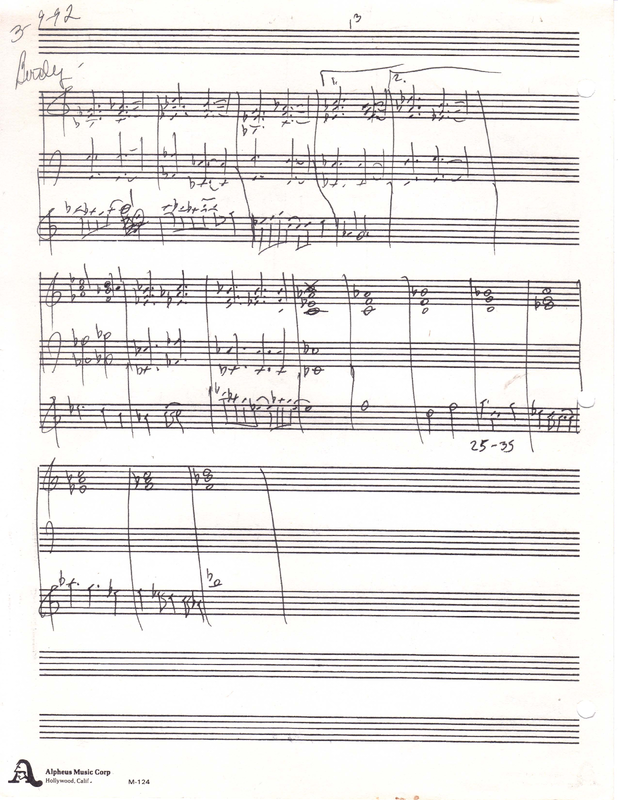 3-9-92
13
1.
2.
25-35
Alpheus Music Corp
Hollywood, Calif.
M-124